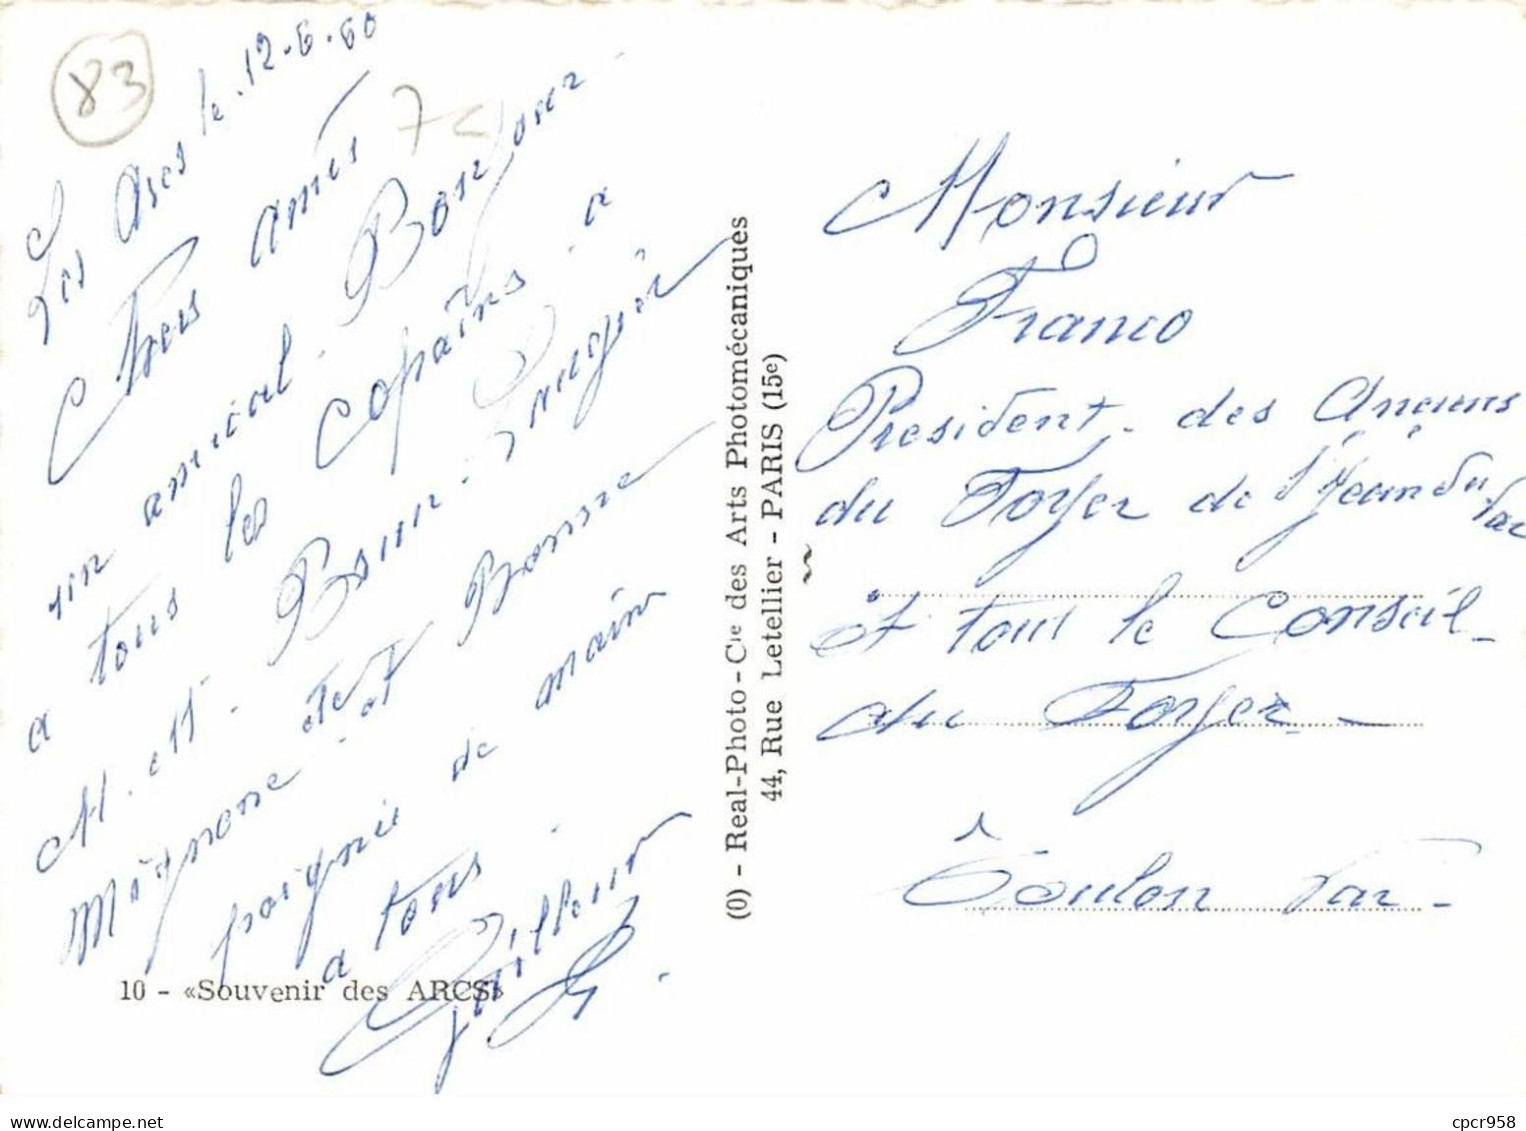 83
Les Arcs le 12-6-60
Chers amis
7
un amical Bonjour
a tous les copains a
M. et Brun
Mignone et Bonne
poignée de main
a tous
10 - «Souvenir des ARCS»
(0) - Real-Photo - Cie des Arts Photomécaniques
44, Rue Letellier - PARIS (15e)
Monsieur
Franco
President des Anciens
du Foyer de
et tout le Conseil
du Foyer
Toulon Var
delcampe.net
cpcr958